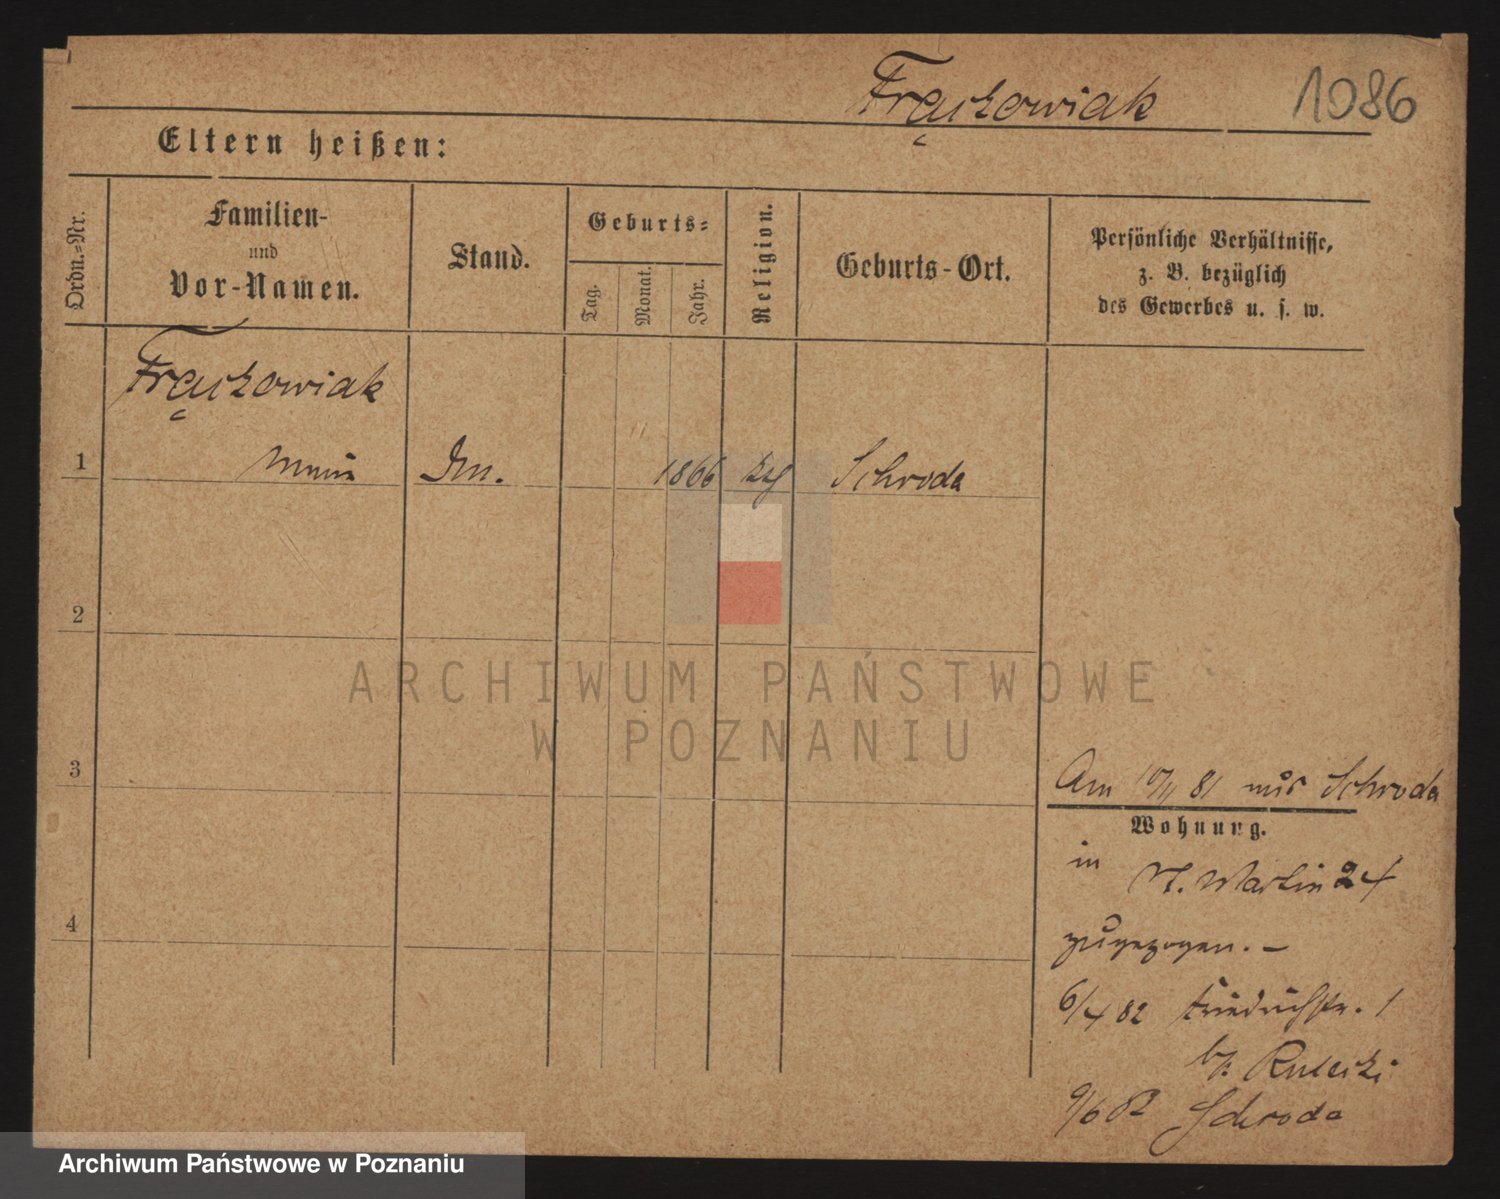 Frąckowiak 1086
Eltern heißen:
Ordn.-Nr.
Familien-
und
Vor-Namen.
Stand.
Geburts-
Tag.
Monat.
Jahr.
Religion.
Geburts-Ort.
Persönliche Verhältnisse,
z. B. bezüglich
des Gewerbes u. s. w.
Frąckowiak
1 1866 Schroda
2
3
4
Am 10/11 81 aus Schroda
Wohnung.
in St. Martin 24
zugezogen. –
6/4 82 Friedrichstr. 1
b/. Rusecki
9/6 82 Schroda
ARCHIWUM PAŃSTWOWE
W POZNANIU
Archiwum Państwowe w Poznaniu